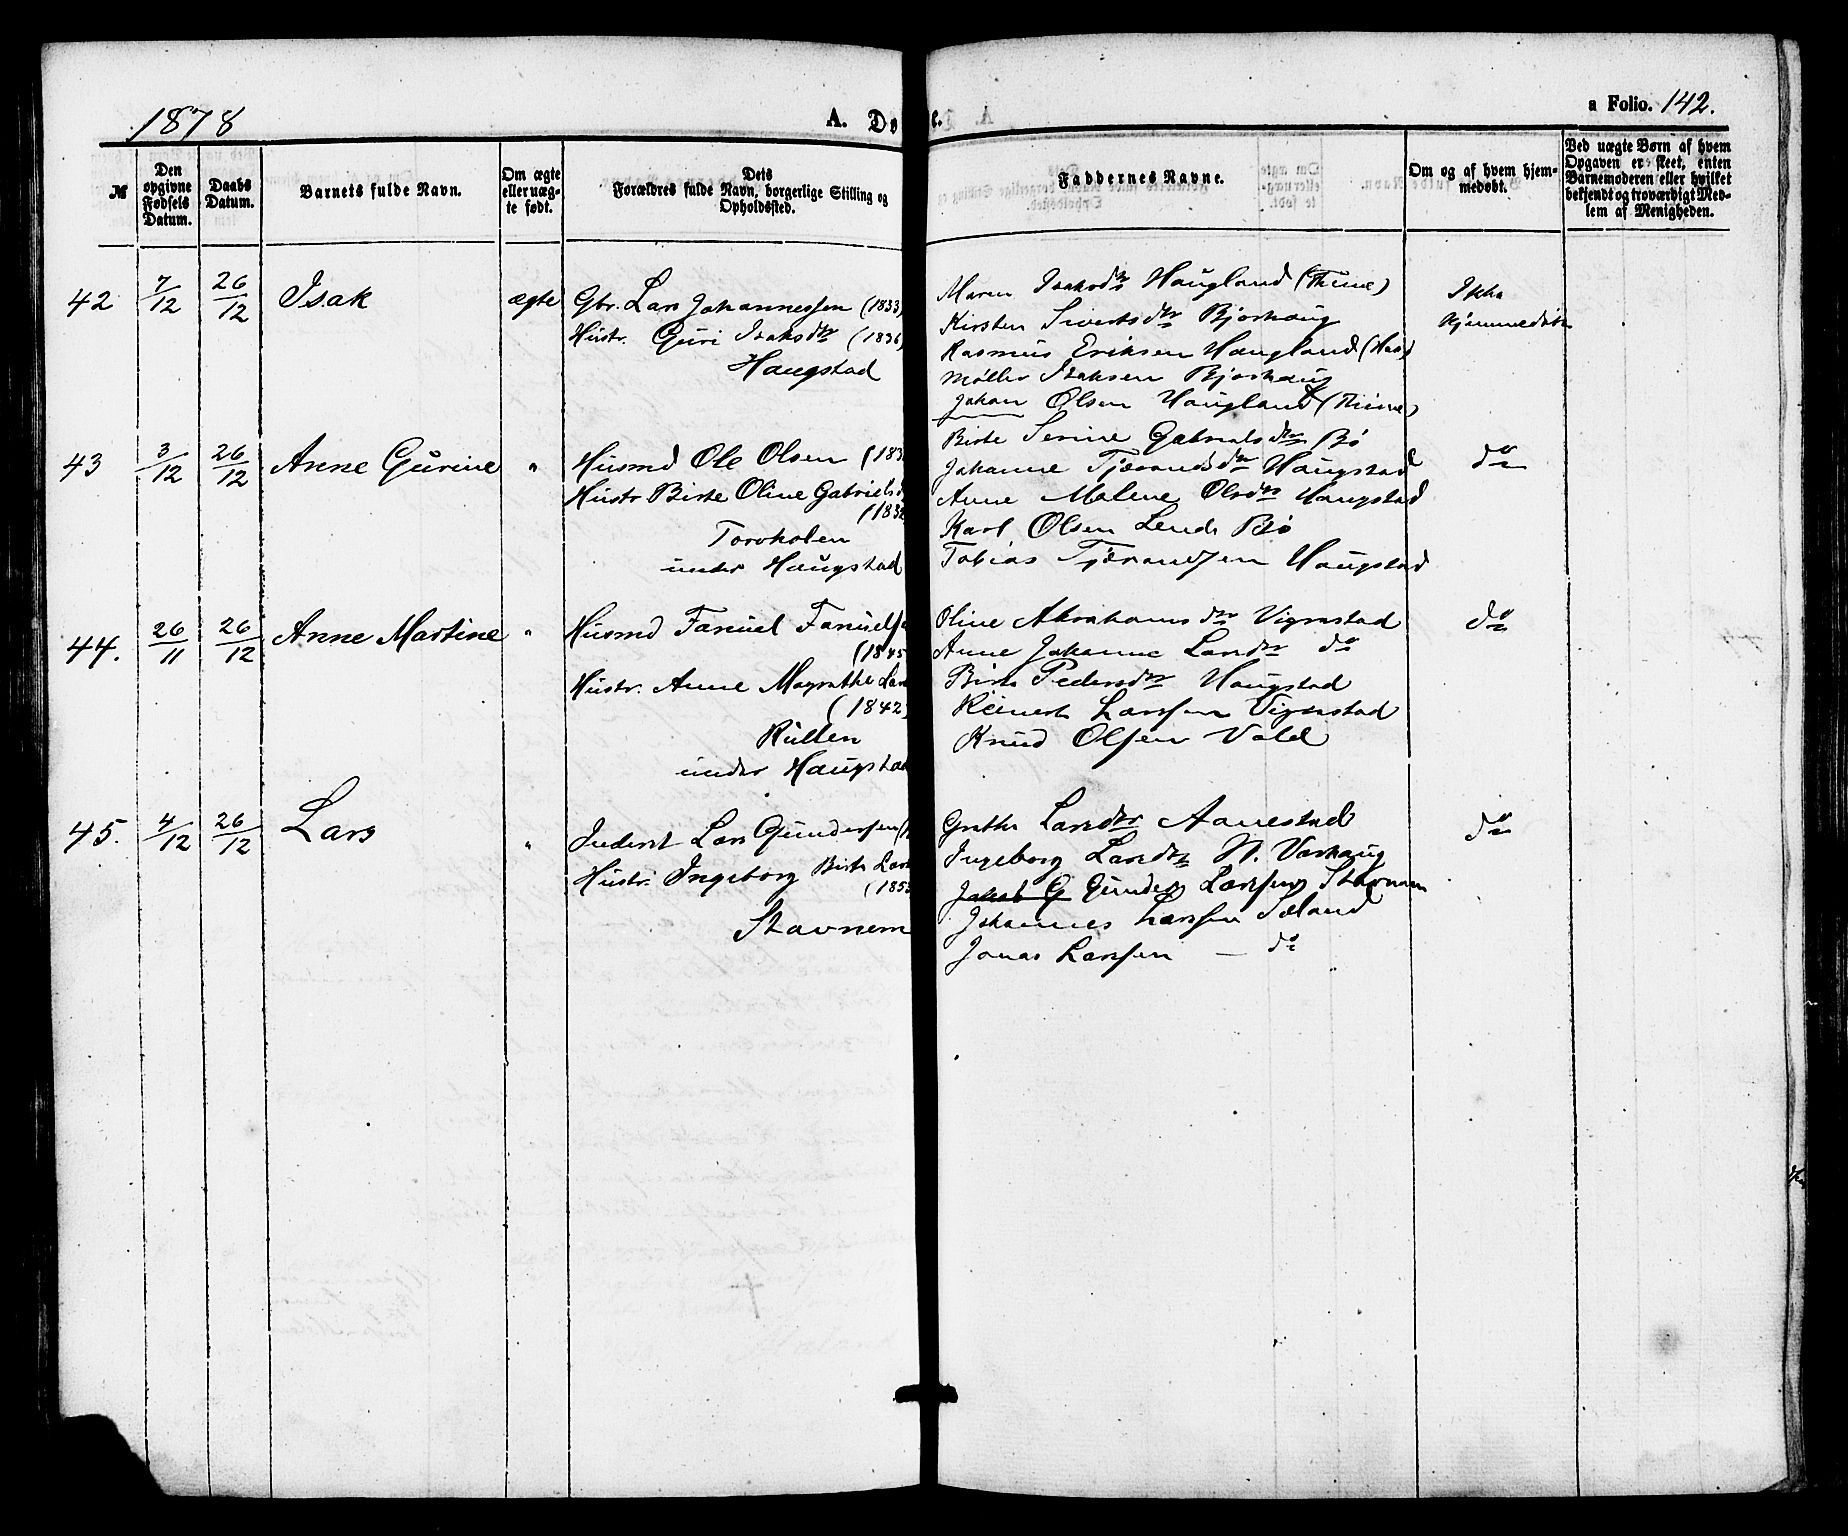 1878
A. Dø
e.
a Folio. 142.
№
Den opgivne Fødsels Datum.
Daabs Datum.
Barnets fulde Navn.
Om ægte eller uæg- te født.
Dets Forældres fulde Navn, borgerlige Stilling og Opholdssted.
Faddernes Navne.
Om og af hvem hjem- medøbt.
Ved uægte Børn af hvem Opgaven er skeet, enten Barnemoderen eller hvilket bekjendt og troværdigt Med- lem af Menigheden.
42 7/12 26/12 Isak ægte
Gbr. Lars Johannessen (1833)
Hustr. Guri Isaksdtr (1836)
Haugstad
Maren Isaksdtr Haugland (Thime)
Kirsten Sivertsdtr Bjorhaug
Rasmus Eriksen Haugland (Haa)
Møller Isaksen Bjorhaug
Johan Olsen Haugland (Thime)
Ikke
hjemmedøbt
43 3/12 26/12 Anne Gurine "
Husmd Ole Olsen (183
Hustr Birte Oline Gabrielsd
(1832
Torvholen
under Haugstad
Birte Serine Gabrielsdtr Bø
Johanne Tjærandsdtr Haugstad
Anne Malene Olsdtr Haugstad
Karl Olsen Lende Bø
Tobias Tjærandsen Haugstad
do
44. 26/11 26/12 Anne Martine "
Husmd Fanuel Fanuelse
(1845
Hustr. Anne Magrethe Lars
(1842)
Rullen
under Haugstad
Oline Abrahamsdtr Vigrestad
Anne Johanne Larsdtr do
Birte Pedersdtr Haugstad
Reinert Larssen Vigrestad
Knud Olsen Vold
do
45. 4/12 26/12 Lars "
Inderst Lars Gundersen (1
Hustr. Ingeborg Birte Lars
(185
Stavnem
Grethe Larsdtr Aanestad
Ingeborg Larsdtr N. Varhaug
Jakob G Gunder Larssen Stavnem
Johannes Larssen Sæland
Jonas Larssen — do
do